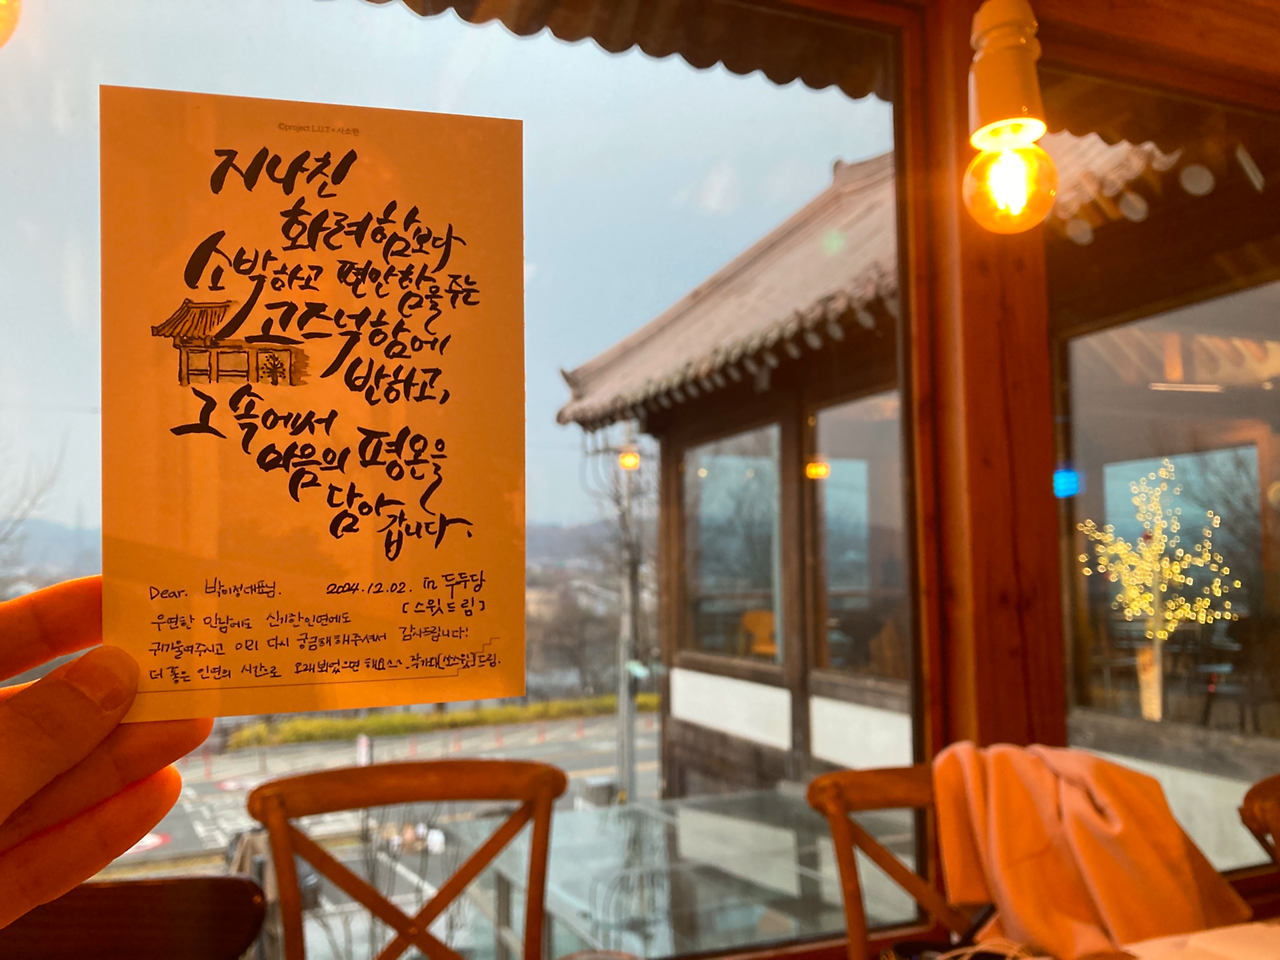 ©project L.U.T × 사소한
지나친
화려함보다
소박하고 편안함을 주는
고즈넉함에
반하고,
그 속에서
마음의 평온을
담아
갑니다.
Dear. 박미정대표님. 2024.12.02. in 두두당
[스윗드림]
우연한 만남에도 신기한인연에도
귀기울여주시고 다시 궁금해해주셔서 감사드립니다!
더 좋은 인연의 시간으로 오래뵈었으면 해요
드림.